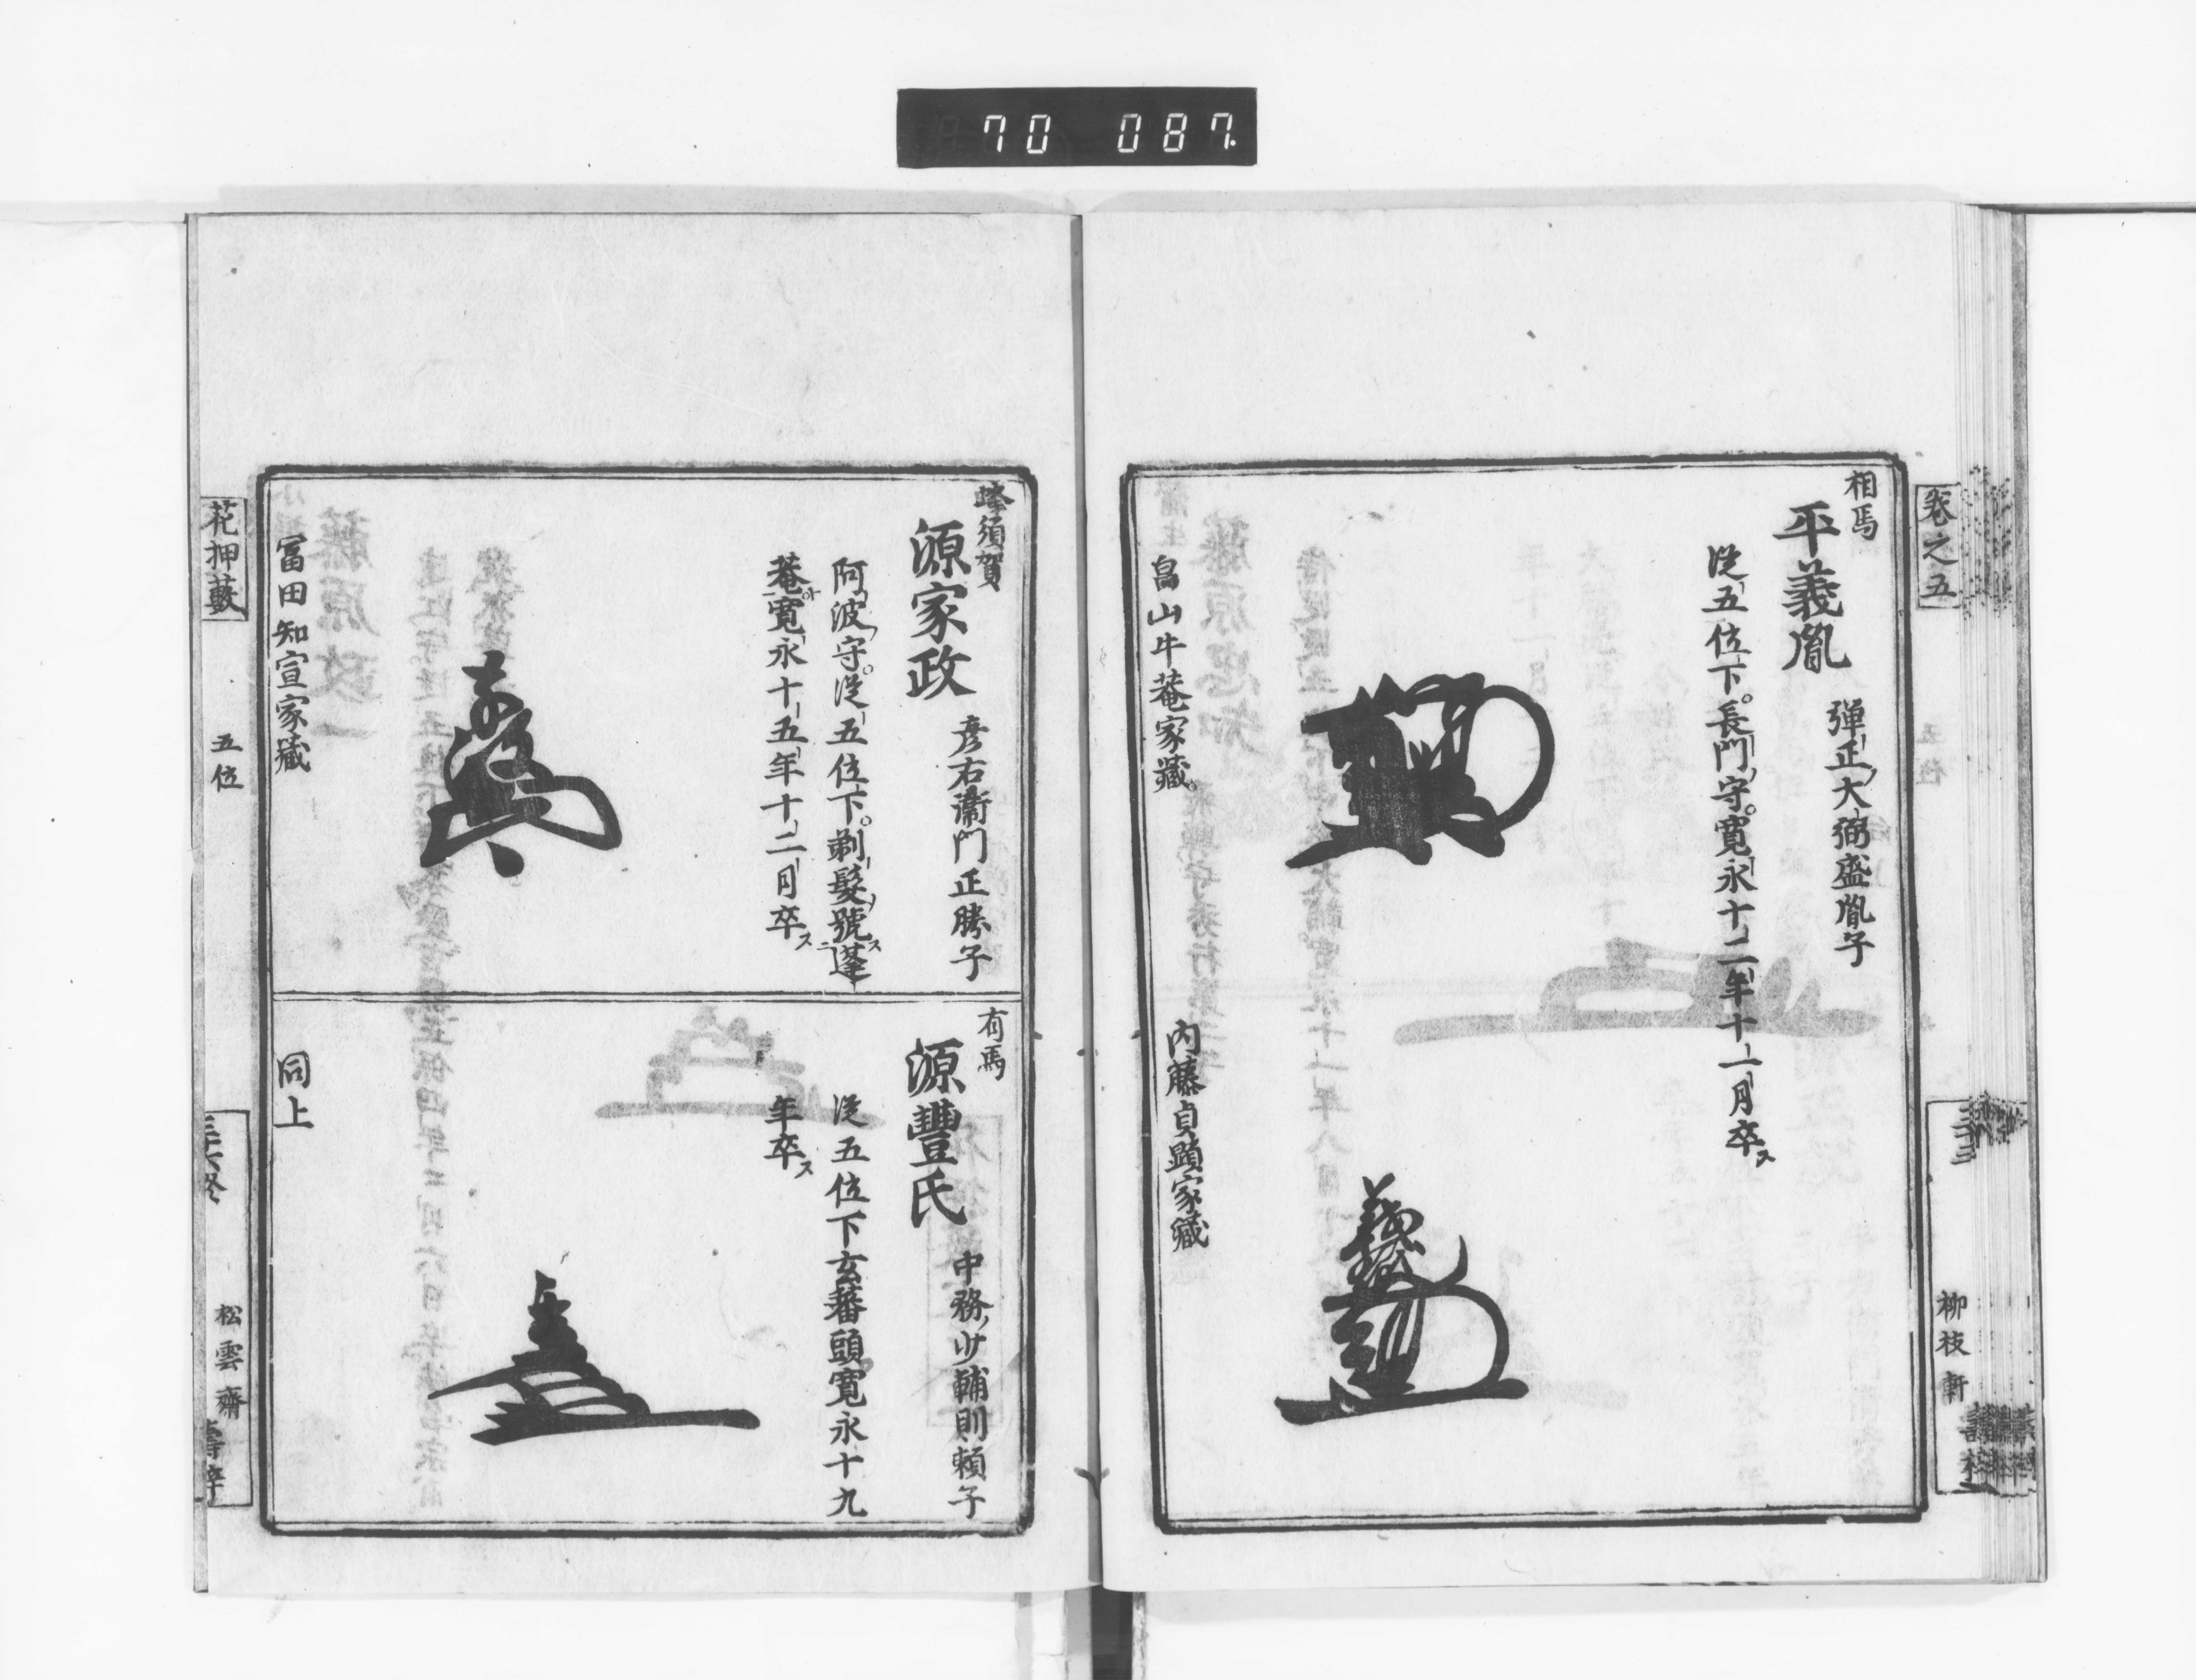 70 087.
卷之五
柳枝軒
相馬
平義胤
彈正大弼盛胤子
従五位下。長門守。寛永十二年十一月卒ス
畠山牛菴家藏。
內藤貞顕家藏
蜂須賀
源家政
彦右衞門正勝子
阿波守。従五位下。剃髪號蓬
菴寛永十五年十二月卒ス
冨田知宣家藏
有馬
源豐氏
中務少輔則頼子
従五位下玄蕃頭寛永十九
年卒ス
同上
花押藪
五位
松雲齋